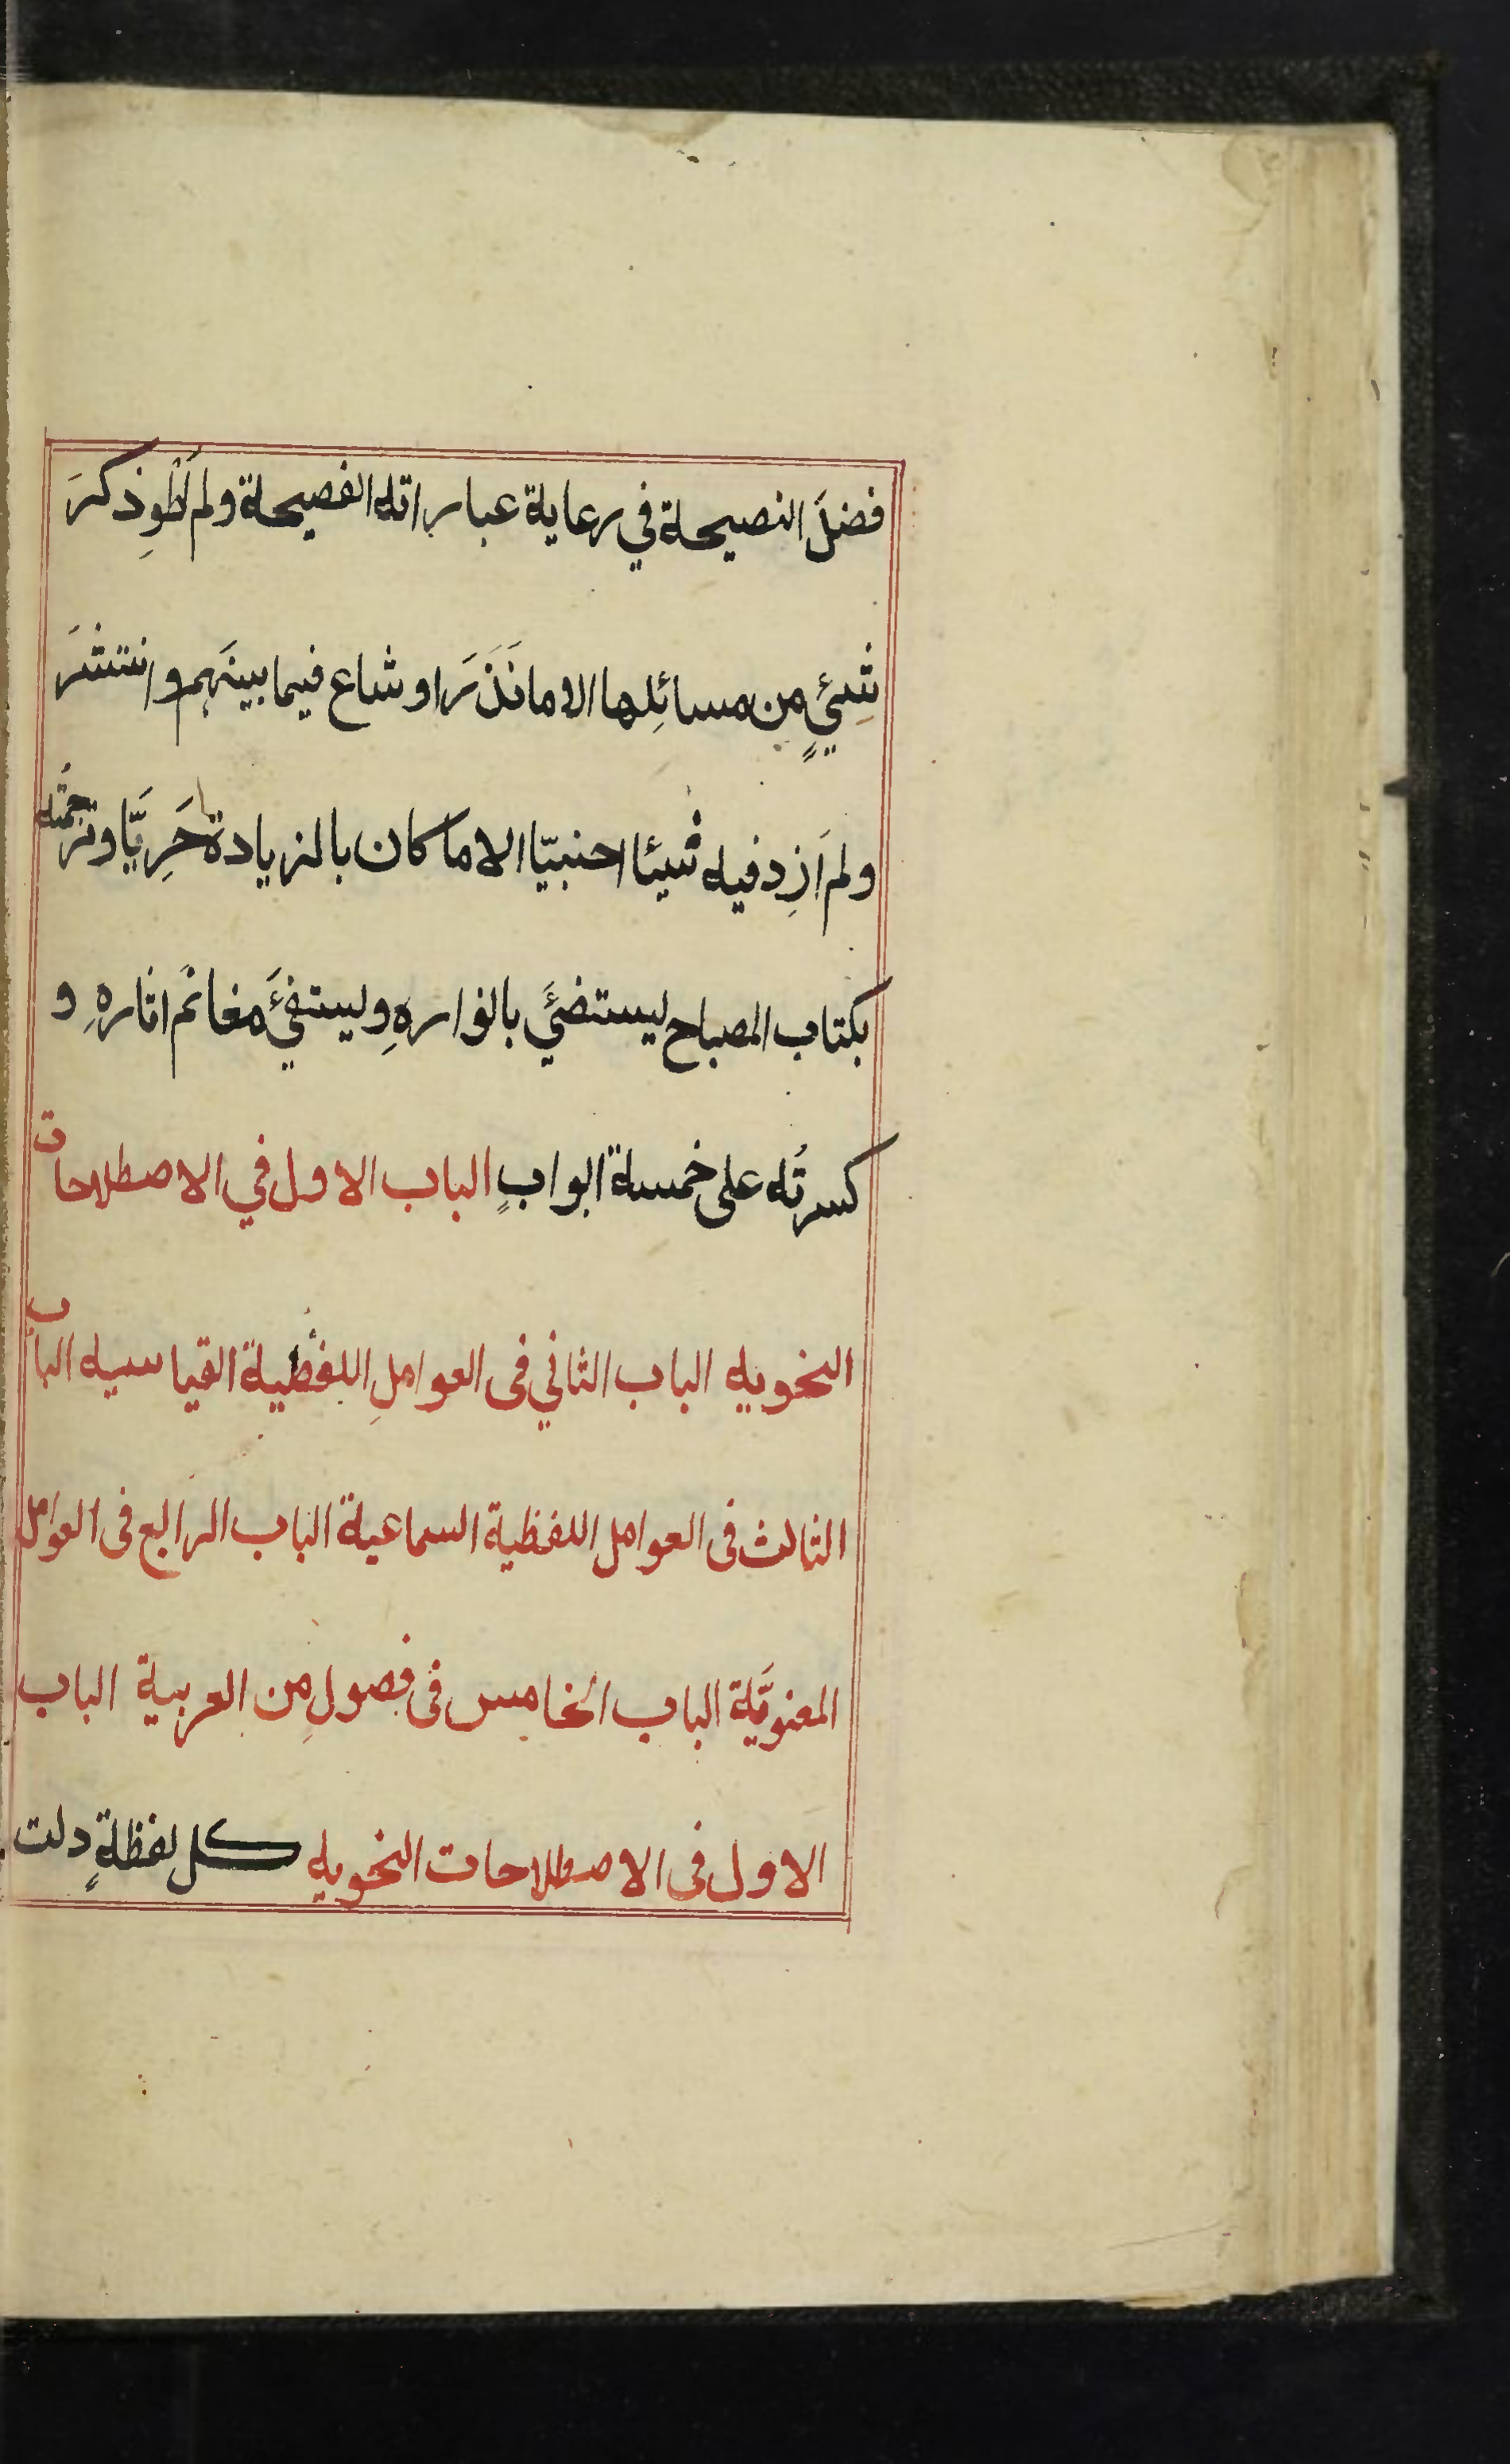 فضلَ النصيحة في رعاية عباراته الفصيحة ولم اَطْوِ ذكرَ
شيئٍ من مسائِلها الا ما نَذَرَ او شاع فيما بينَهم وانتشَرَ
ولم اَزِد فيه شيئا اجنبيّا الا ما كان بالزيادة حَرِيًّا وترجمتُه
بكتاب المصباح ليستضئَ بانوارهِ وليستفئَ مغانم اثارهِ و
كسرتُه على خمسة ابوابٍ الباب الاول في الاصطلاحات
النحويه الباب الثاني فى العواملِ اللفظية القياسيه الباب
الثالث فى العوامل اللفظية السماعية الباب الرابع فى العوامل
المعنويّة الباب الخامس فى فصولِ من العربية الباب
الاول فى الاصطلاحات النحويه كل لفظةٍ دلت